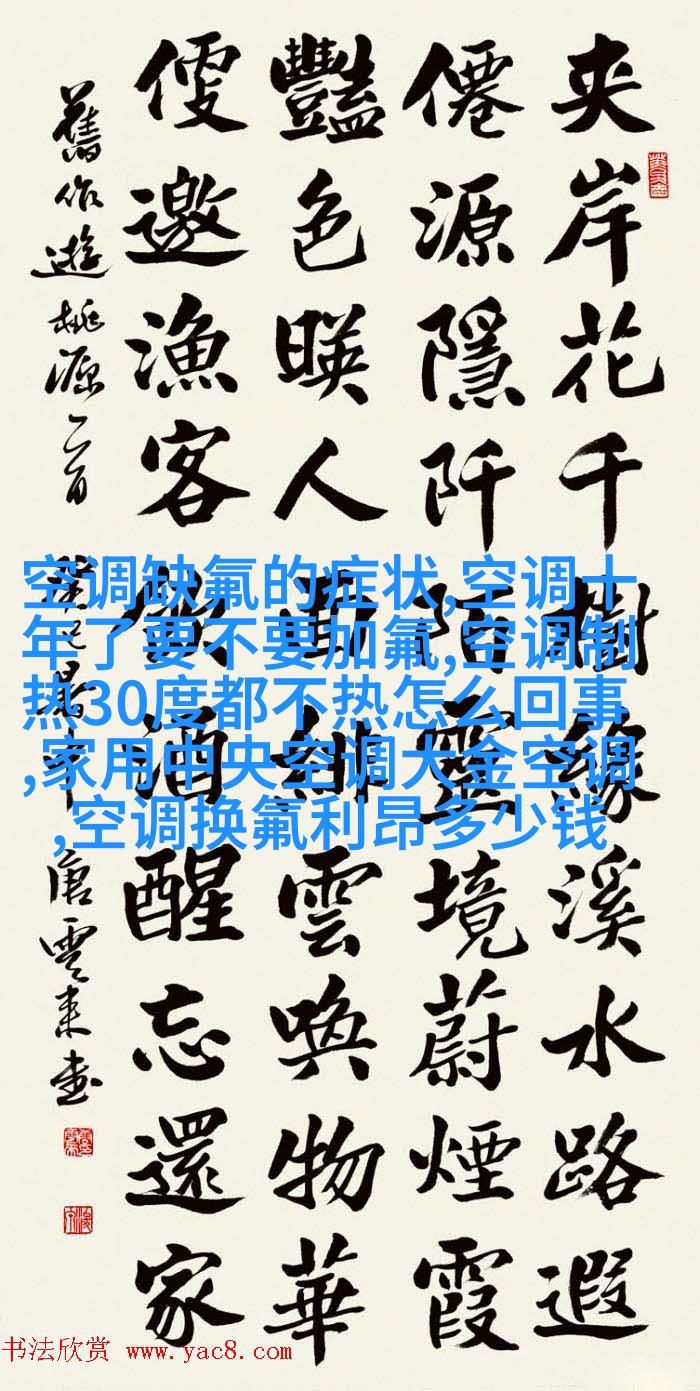 夾岸花千樹緣溪水路遐
僊源隱阡陌靈境蔚煙霞
豔色暎人雲喚物華
便邀漁客酒醒忘還家
舊作遊桃源二首 癸巳 唐雲來書
空调缺氟的症状,空调十
年了要不要加氟,空调制
热30度都不热怎么回事
,家用中央空调大金空调
,空调换氟利昂多少钱
书法欣赏 www.yac8.com